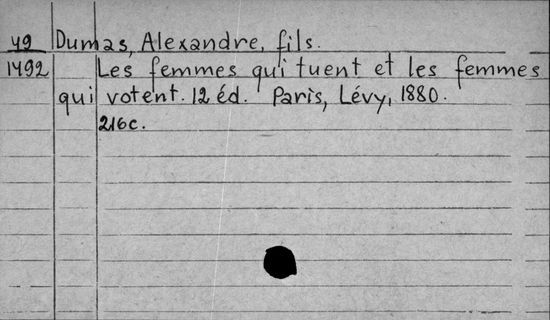 49 Dumas, Alexandre, fils.
1492 Les femmes qui tuent et les femmes
qui votent. 12 éd. Paris, Lévy, 1880.
216c.